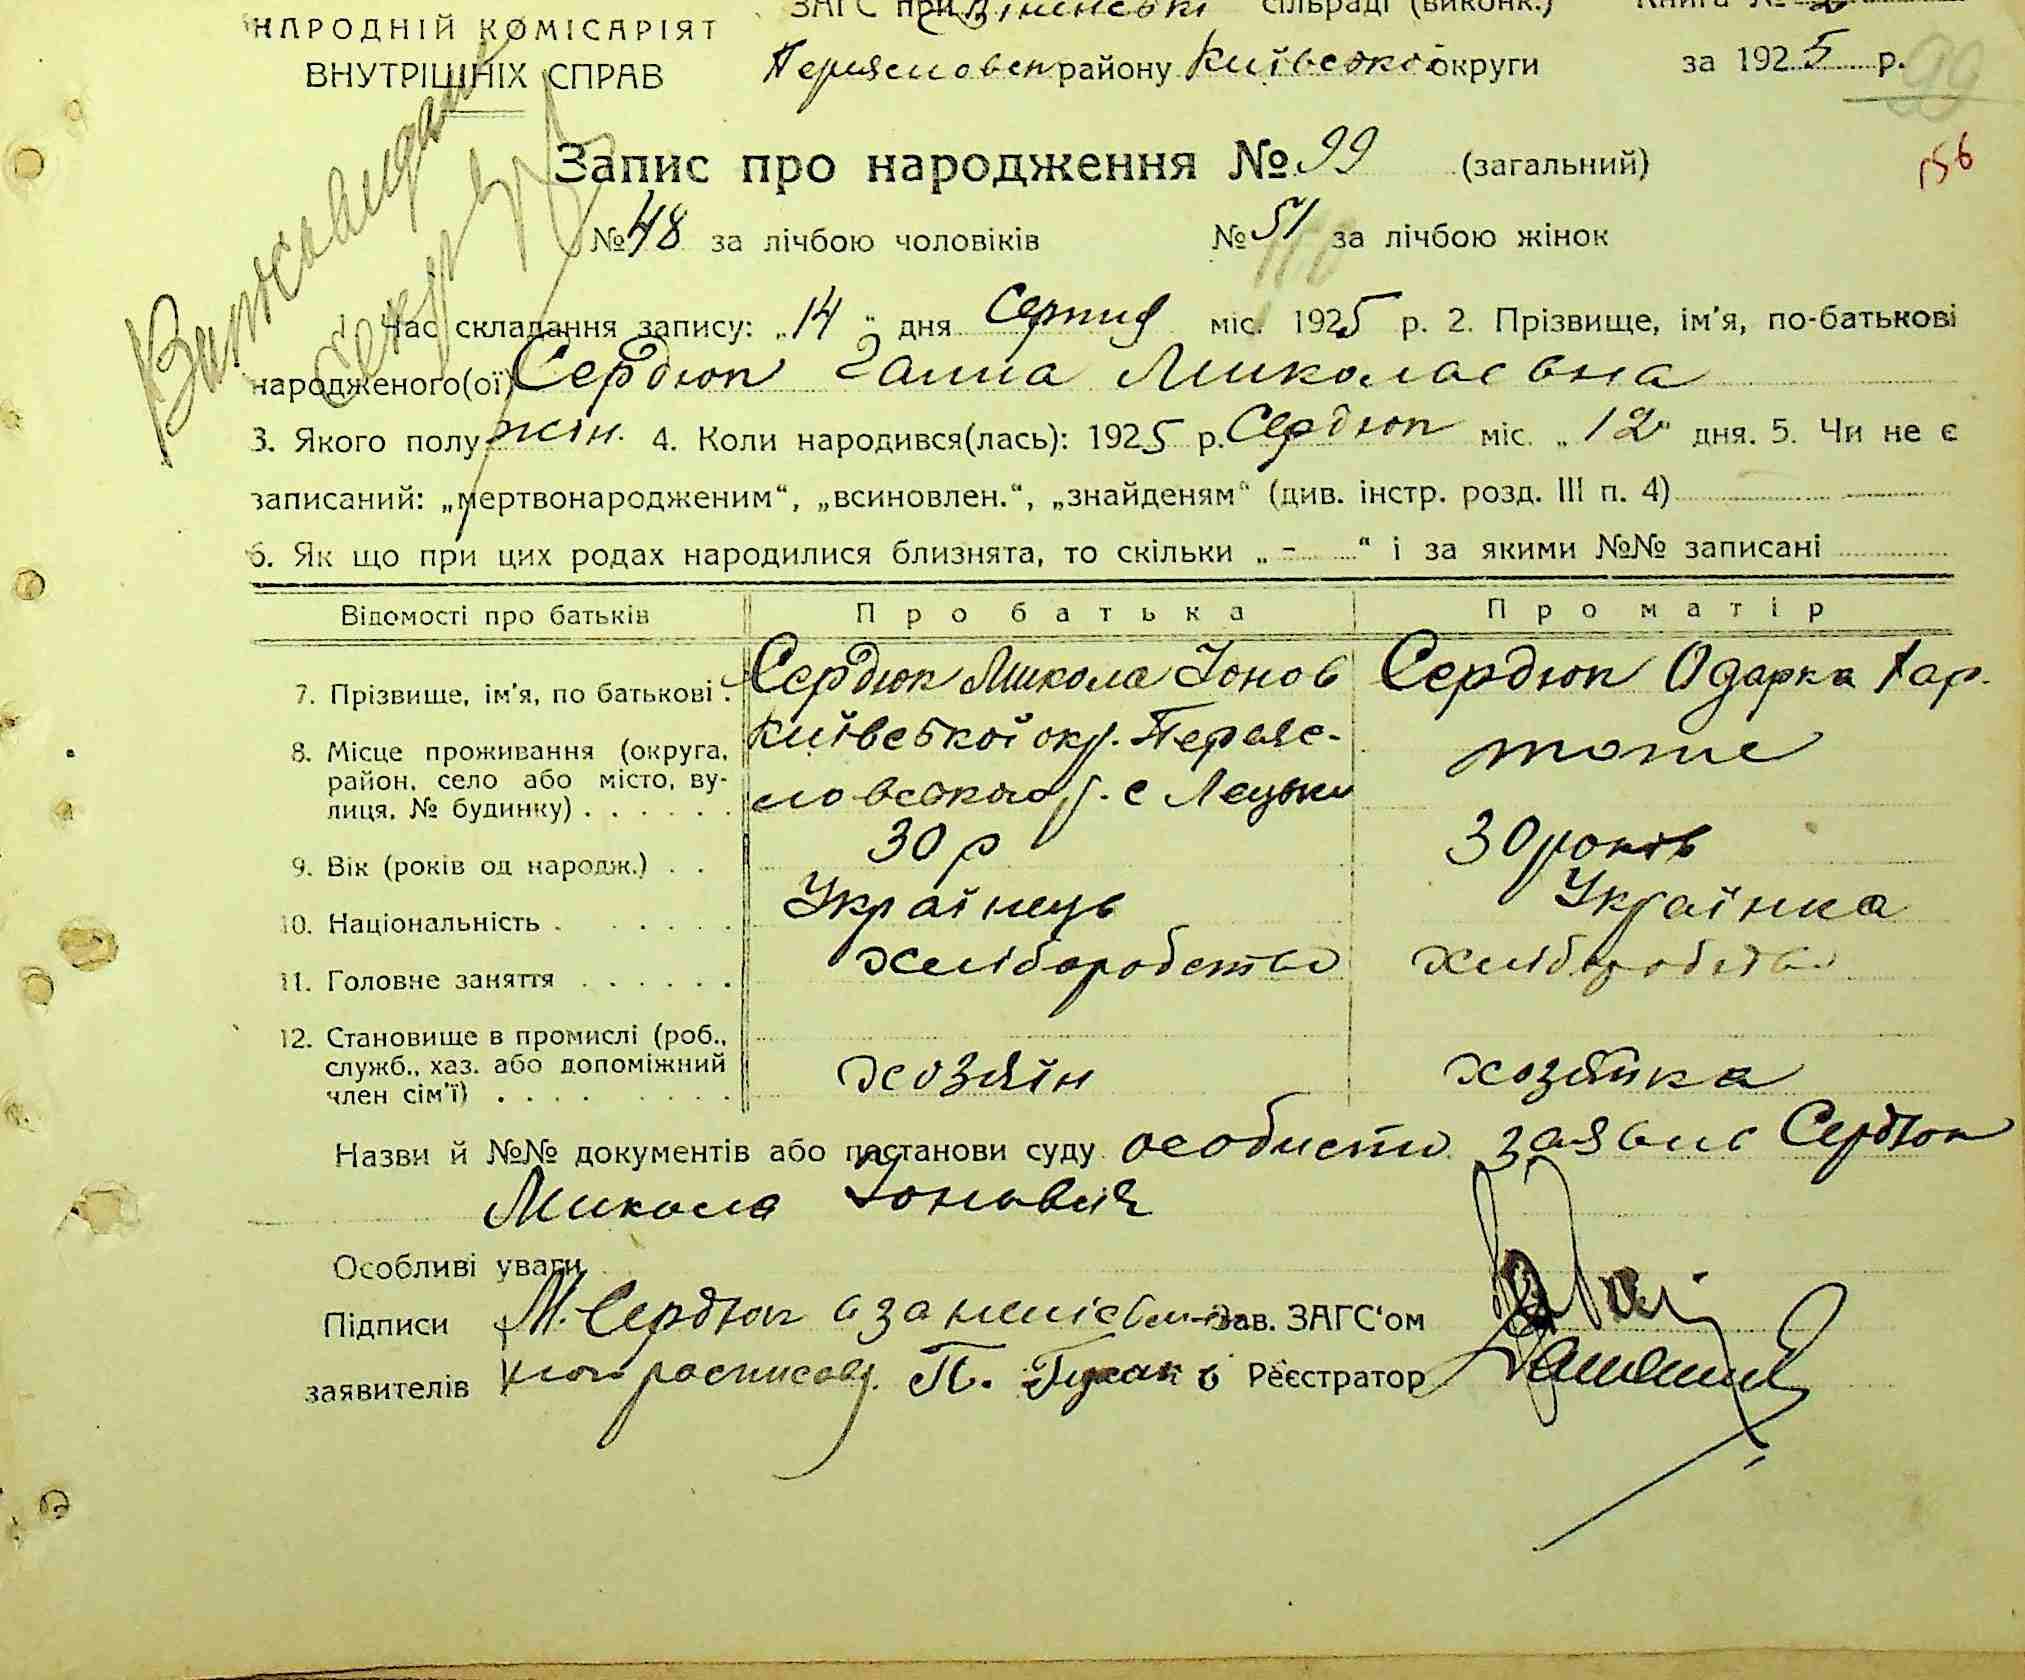 НАРОДНІЙ КОМІСАРІЯТ
ВНУТРІШНІХ СПРАВ
ЗАГС при сільраді (виконк.) Книга №
Переясловск району Київської округи за 1925 р. 99
156
Запис про народження № 99 (загальний)
№ 48 за лічбою чоловіків № 51 за лічбою жінок
1. Час складання запису: „14“ дня Серпня міс. 1925 р. 2. Прізвище, ім'я, по-батькові
народженого(ої) Сердюк Ганна Миколаєвна
3. Якого полу жін. 4. Коли народився(лась): 1925 р. Сердюк міс. „12“ дня. 5. Чи не є
записаний: „мертвонародженим“, „всиновлен.“, „знайденям“ (див. інстр. розд. III п. 4)
6. Як що при цих родах народилися близнята, то скільки „-“ і за якими №№ записані
Відомості про батьків Про батька Про матір
7. Прізвище, ім'я, по батькові . Сердюк Микола Іонов Сердюк Одарка Хар.
8. Місце проживання (округа, район, село або місто, вулиця, № будинку) . . . . . . Київської окр. Переяс-
ловського р. с Лецьки тоже
9. Вік (років од народж.) . . 30 р 30 років
10. Національність . . . . . . Українець Українка
11. Головне заняття . . . . . . хліборобство хліборобство
12. Становище в промислі (роб., служб., хаз. або допоміжний член сім'ї) . . . . . . . . хозяїн хозяйка
Назви й №№ документів або постанови суду особисто заявив Сердюк
Микола Іонович
Особливі уваги
Підписи М. Сердюк а за неписьмен Зав. ЗАГС'ом
заявителів росписавс. П. Гусак Реєстратор